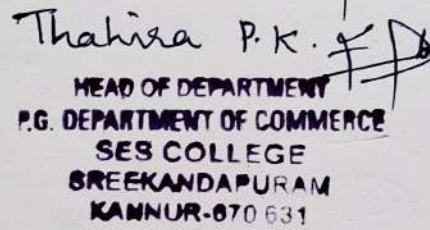 Thahira P.K.
HEAD OF DEPARTMENT
P.G. DEPARTMENT OF COMMERCE
SES COLLEGE
SREEKANDAPURAM
KANNUR-670 631